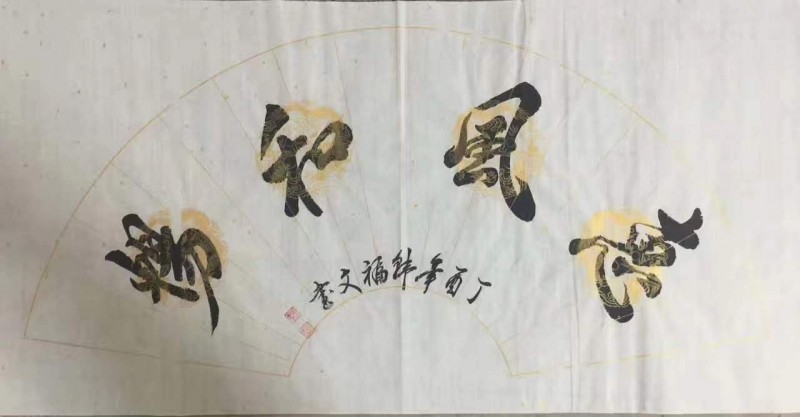 惠風和暢
丁酉年韩福文书